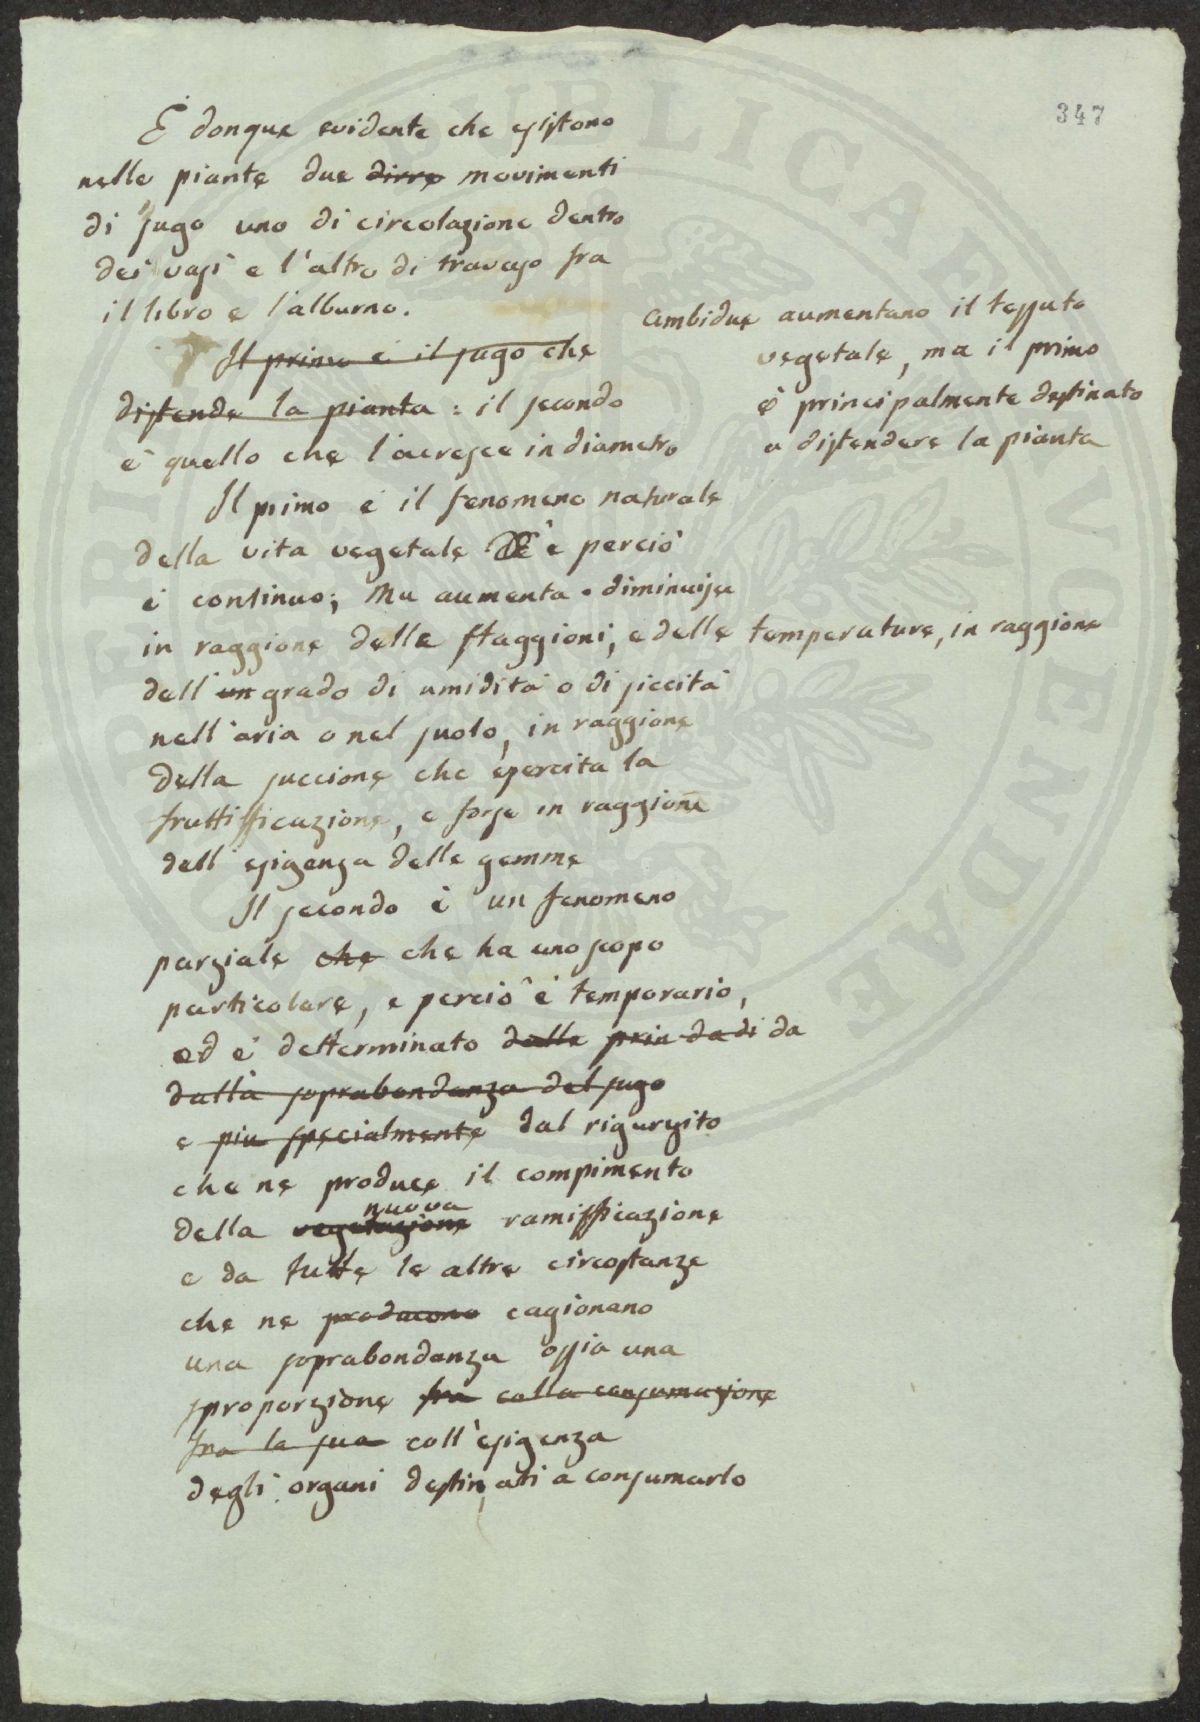 347
È donque evidente che esistono
nelle piante due dirre movimenti
di sugo uno di circolazione dentro
dei vasi e l'altro di travaso fra
il libro e l'alburno.
Ambidue aumentano il tessuto
vegetale, ma il primo
è principalmente destinato
a distendere la pianta
Il primo è il sugo che
distende la pianta : il secondo
è quello che l'acresce in diametro
Il primo è il fenomeno naturale
della vita vegetale e perciò
è continuo; Ma aumenta o diminuisce
in raggione delle staggioni, e delle temperature, in raggione
dell' un grado di umidità o di siccità
nell'aria o nel suolo, in raggione
della succione che esercita la
fruttifficazione, e forse in raggione
dell' esigenza delle gemme
Il secondo è un fenomeno
parziale che che ha uno scopo
particolare, e perciò è temporario,
ed è detterminato dalla prin da di da
dalla soprabondanza del sugo
e piu specialmente dal rigurgito
che ne produce il compimento
della vegetazione nuova ramifficazione
e da tutte le altre circostanze
che ne producono cagionano
una soprabondanza ossia una
sproporzione fra colla consumazione
fra la sua coll'esigenza
degli organi destinati a consumarlo
PUBLICAE